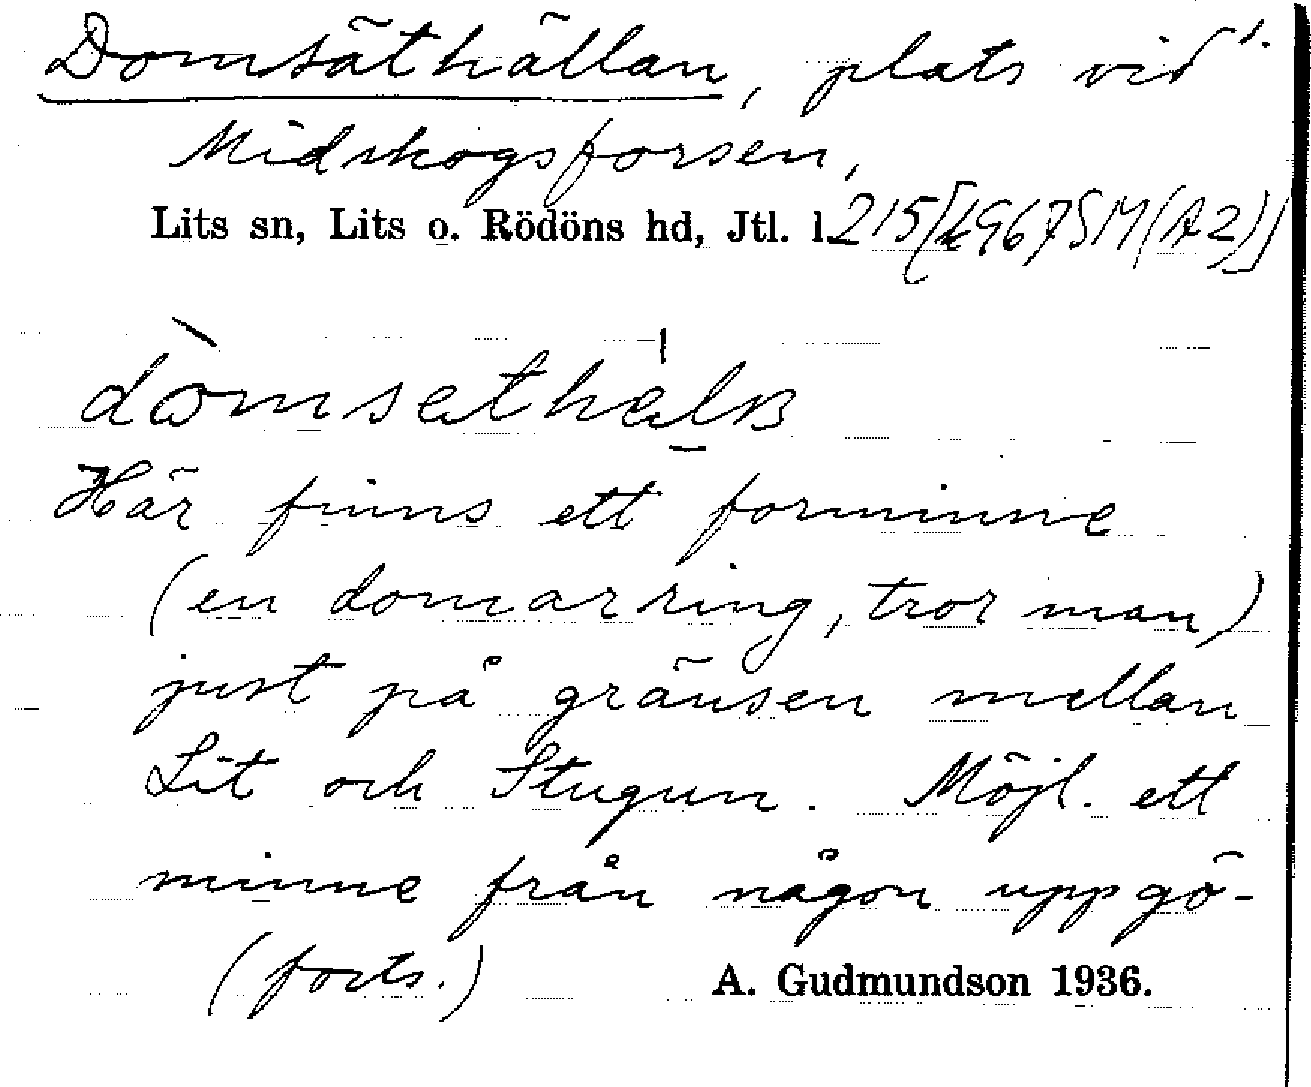 Domsäthällan, plats vid 1.
Midskogsforsen,
Lits sn, Lits o. Rödöns hd, Jtl. l. 215 [1967 SM (A2)]
Här finns ett fornminne
(en domarring, tror man)
just på gränsen mellan
Lit och Stugun. Möjl. ett
minne från någon uppgö-
(forts.) A. Gudmundson 1936.